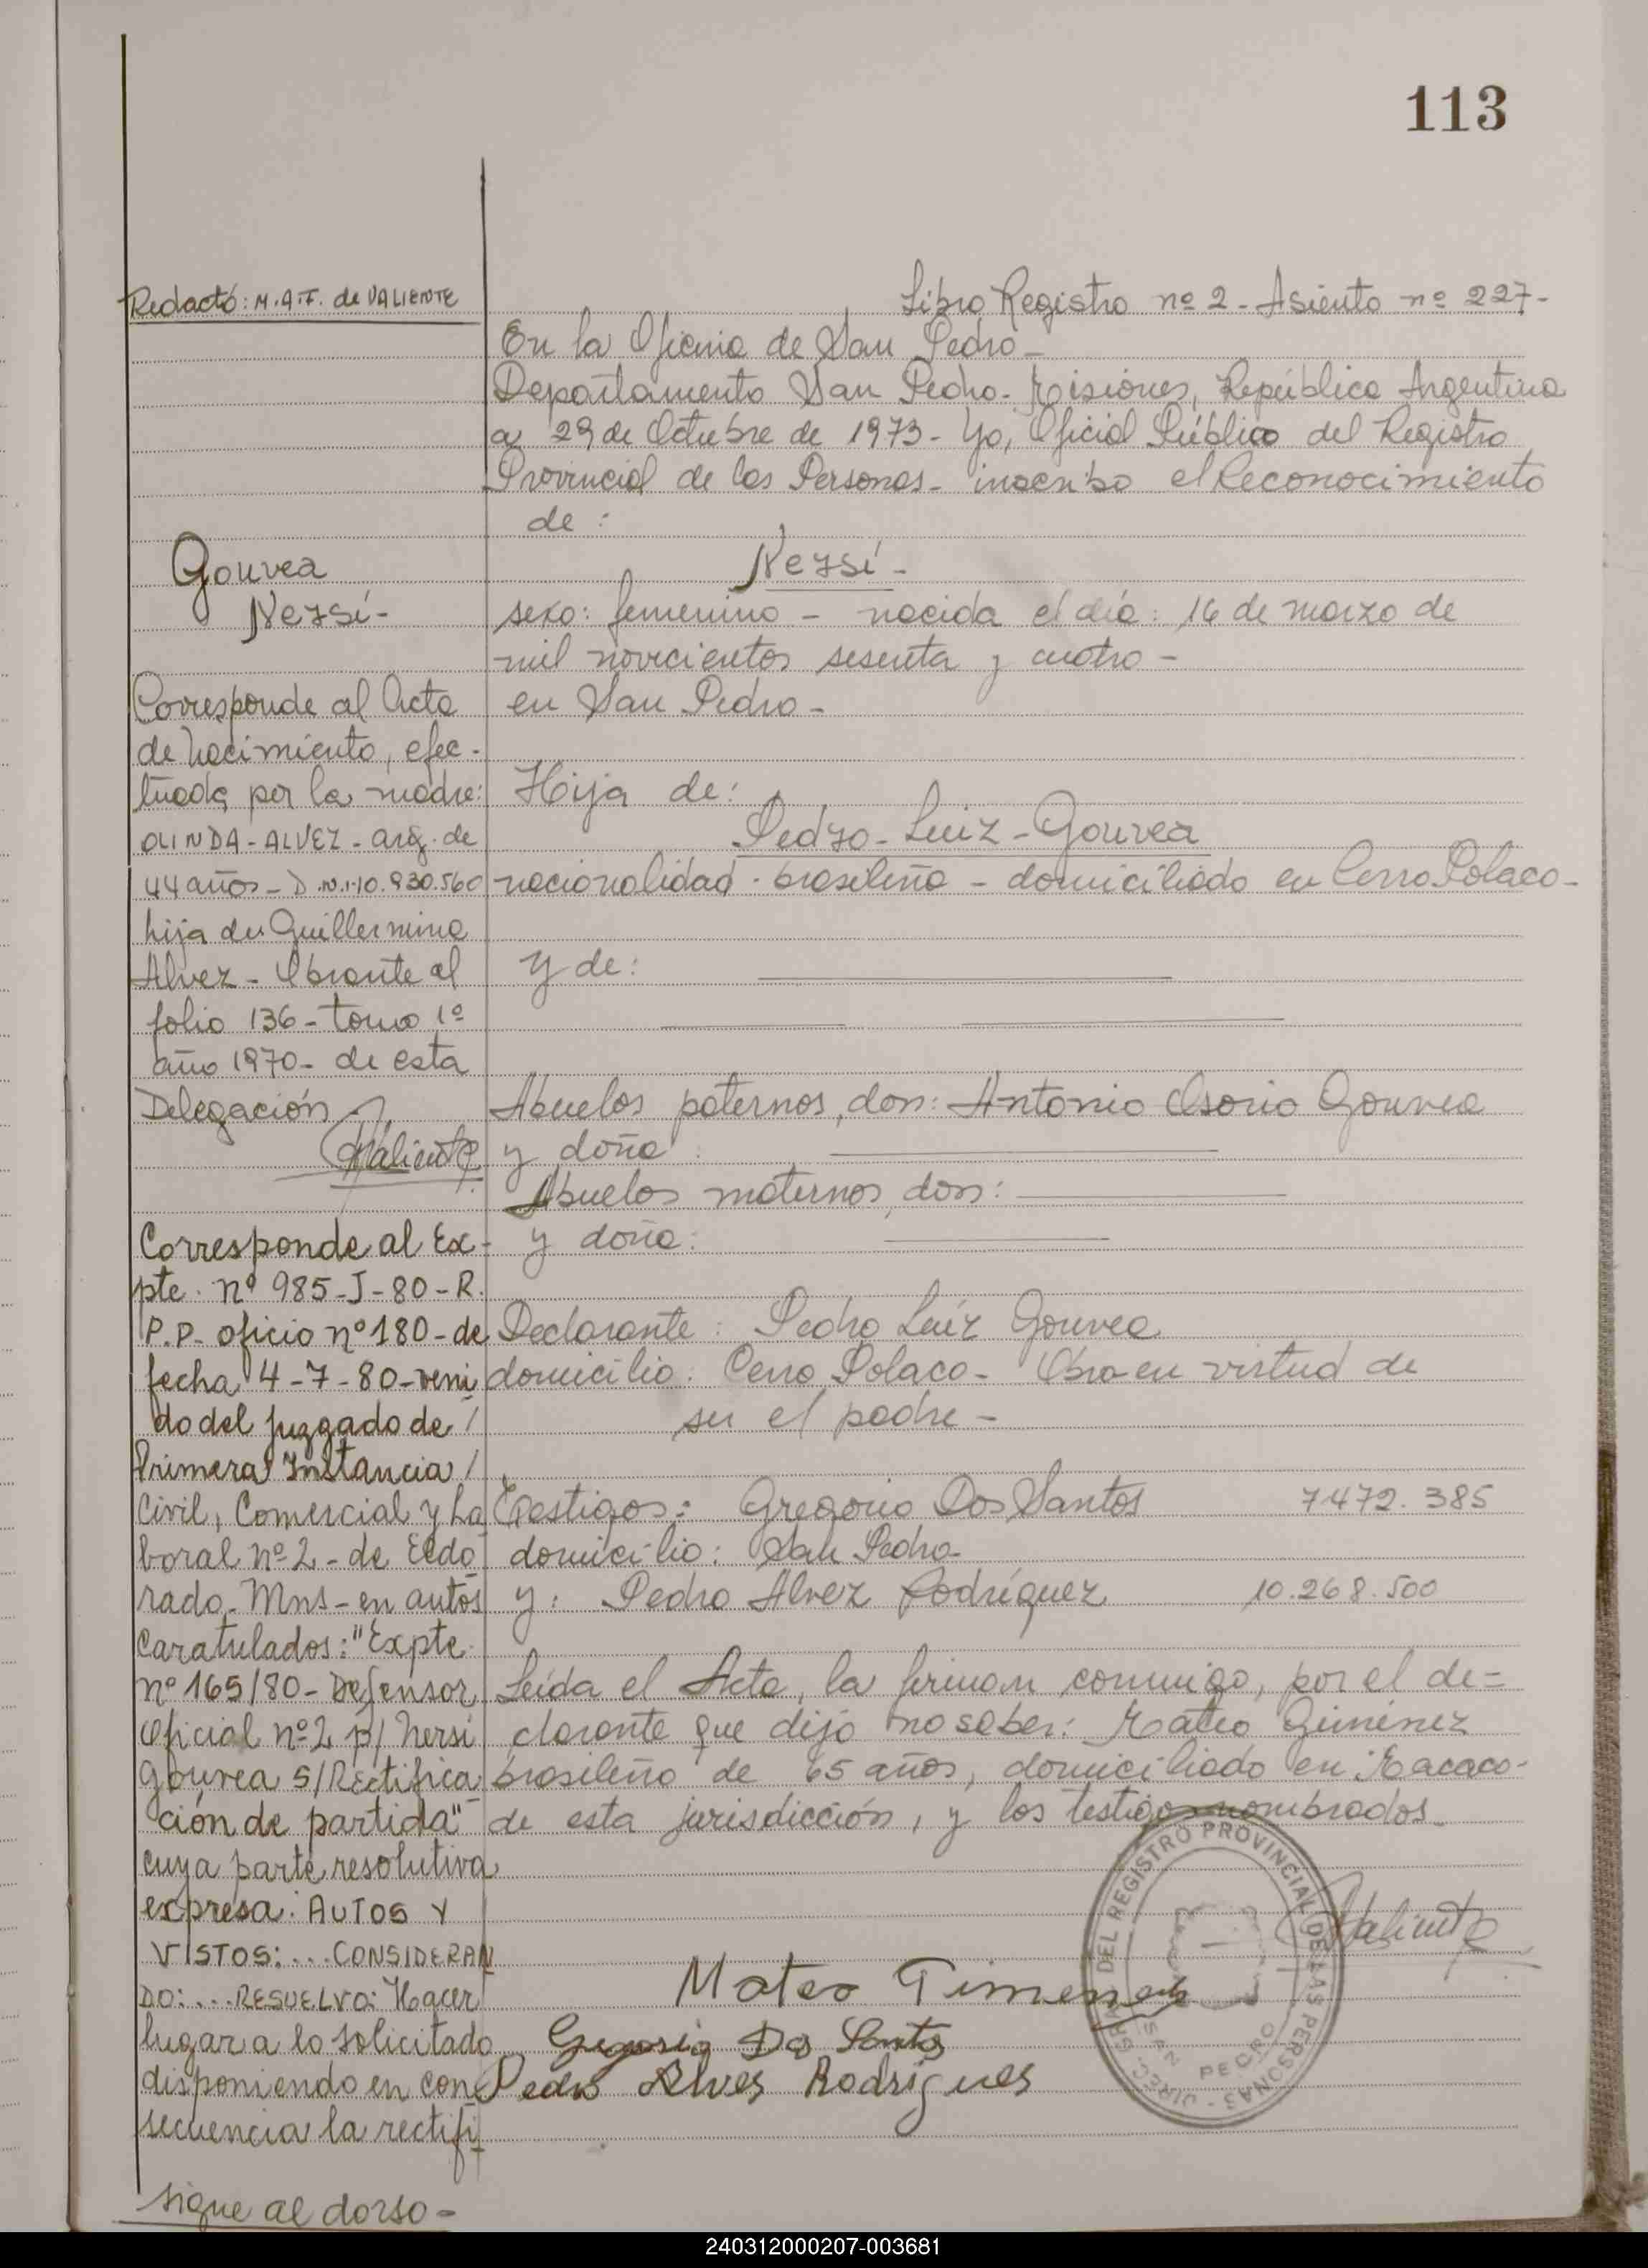 113
Redactó: M.A.F. de VALIENTE
Gouvea
Nersí-
Corresponde al Acta
de Nacimiento, efec-
tuada por la madre:
OLINDA-ALVEZ-arg. de
44 años-D.N.I-10.930.560
hija de Guillermina
Alvez- Obrante al
folio 136-tomo 1º
año 1970- de esta
Delegación
Valiente
Corresponde al Ex-
pte. nº 985-J-80-R.
P.P- oficio nº 180-de
fecha 4-7-80-veni
do del Juzgado de /
Primera Instancia /
Civil, Comercial y La
boral nº 2-de Eldo
rado-Mns-en autos
caratulados: "Expte
nº 165/80-Defensor
Oficial nº 2 p/ Nersi
Gouvea S/Rectifica
ción de partida"
cuya parte resolutiva
expresa: AUTOS Y
VISTOS:...CONSIDERAN
DO:...RESUELVO: Hacer
lugar a lo solicitado
disponiendo en con
secuencia la rectifi
sigue al dorso-
Libro Registro nº 2 - Asiento nº 227-
En la Oficina de San Pedro-
Departamento San Pedro- Misiones, República Argentina
a 29 de Octubre de 1973- Yo, Oficial Público del Registro
Provincial de las Personas- inscribo el Reconocimiento
de:
Nersí-
sexo: femenino - nacida el día: 16 de marzo de
mil novecientos sesenta y cuatro-
en San Pedro-
Hija de:
Pedro-Luiz-Gouvea
nacionalidad-brasileña-domiciliado en Cerro Polaco-
y de:
Abuelos paternos, don: Antonio Osorio Gouvea
y doña:
Abuelos maternos, don:
y doña:
Declarante: Pedro Luíz Gouvea
domicilio: Cerro Polaco- Obra en virtud de
ser el padre-
Testigos: Gregorio Dos Santos 7472.385
domicilio: San Pedro-
y: Pedro Alvez Rodríguez 10.268.500
Leída el Acta, la firman conmigo, por el de=
clarante que dijo no saber: Mateo Giménez
brasileño de 65 años, domiciliado en Macaco-
de esta jurisdicción, y los testigos nombrados-
Valiente
Mateo Timenez
Gregorio Dos Santos
Pedro Alves Rodrigues
DIREC. GRAL. DEL REGISTRO PROVINCIAL DE LAS PERSONAS -
SAN PEDRO
240312000207-003681